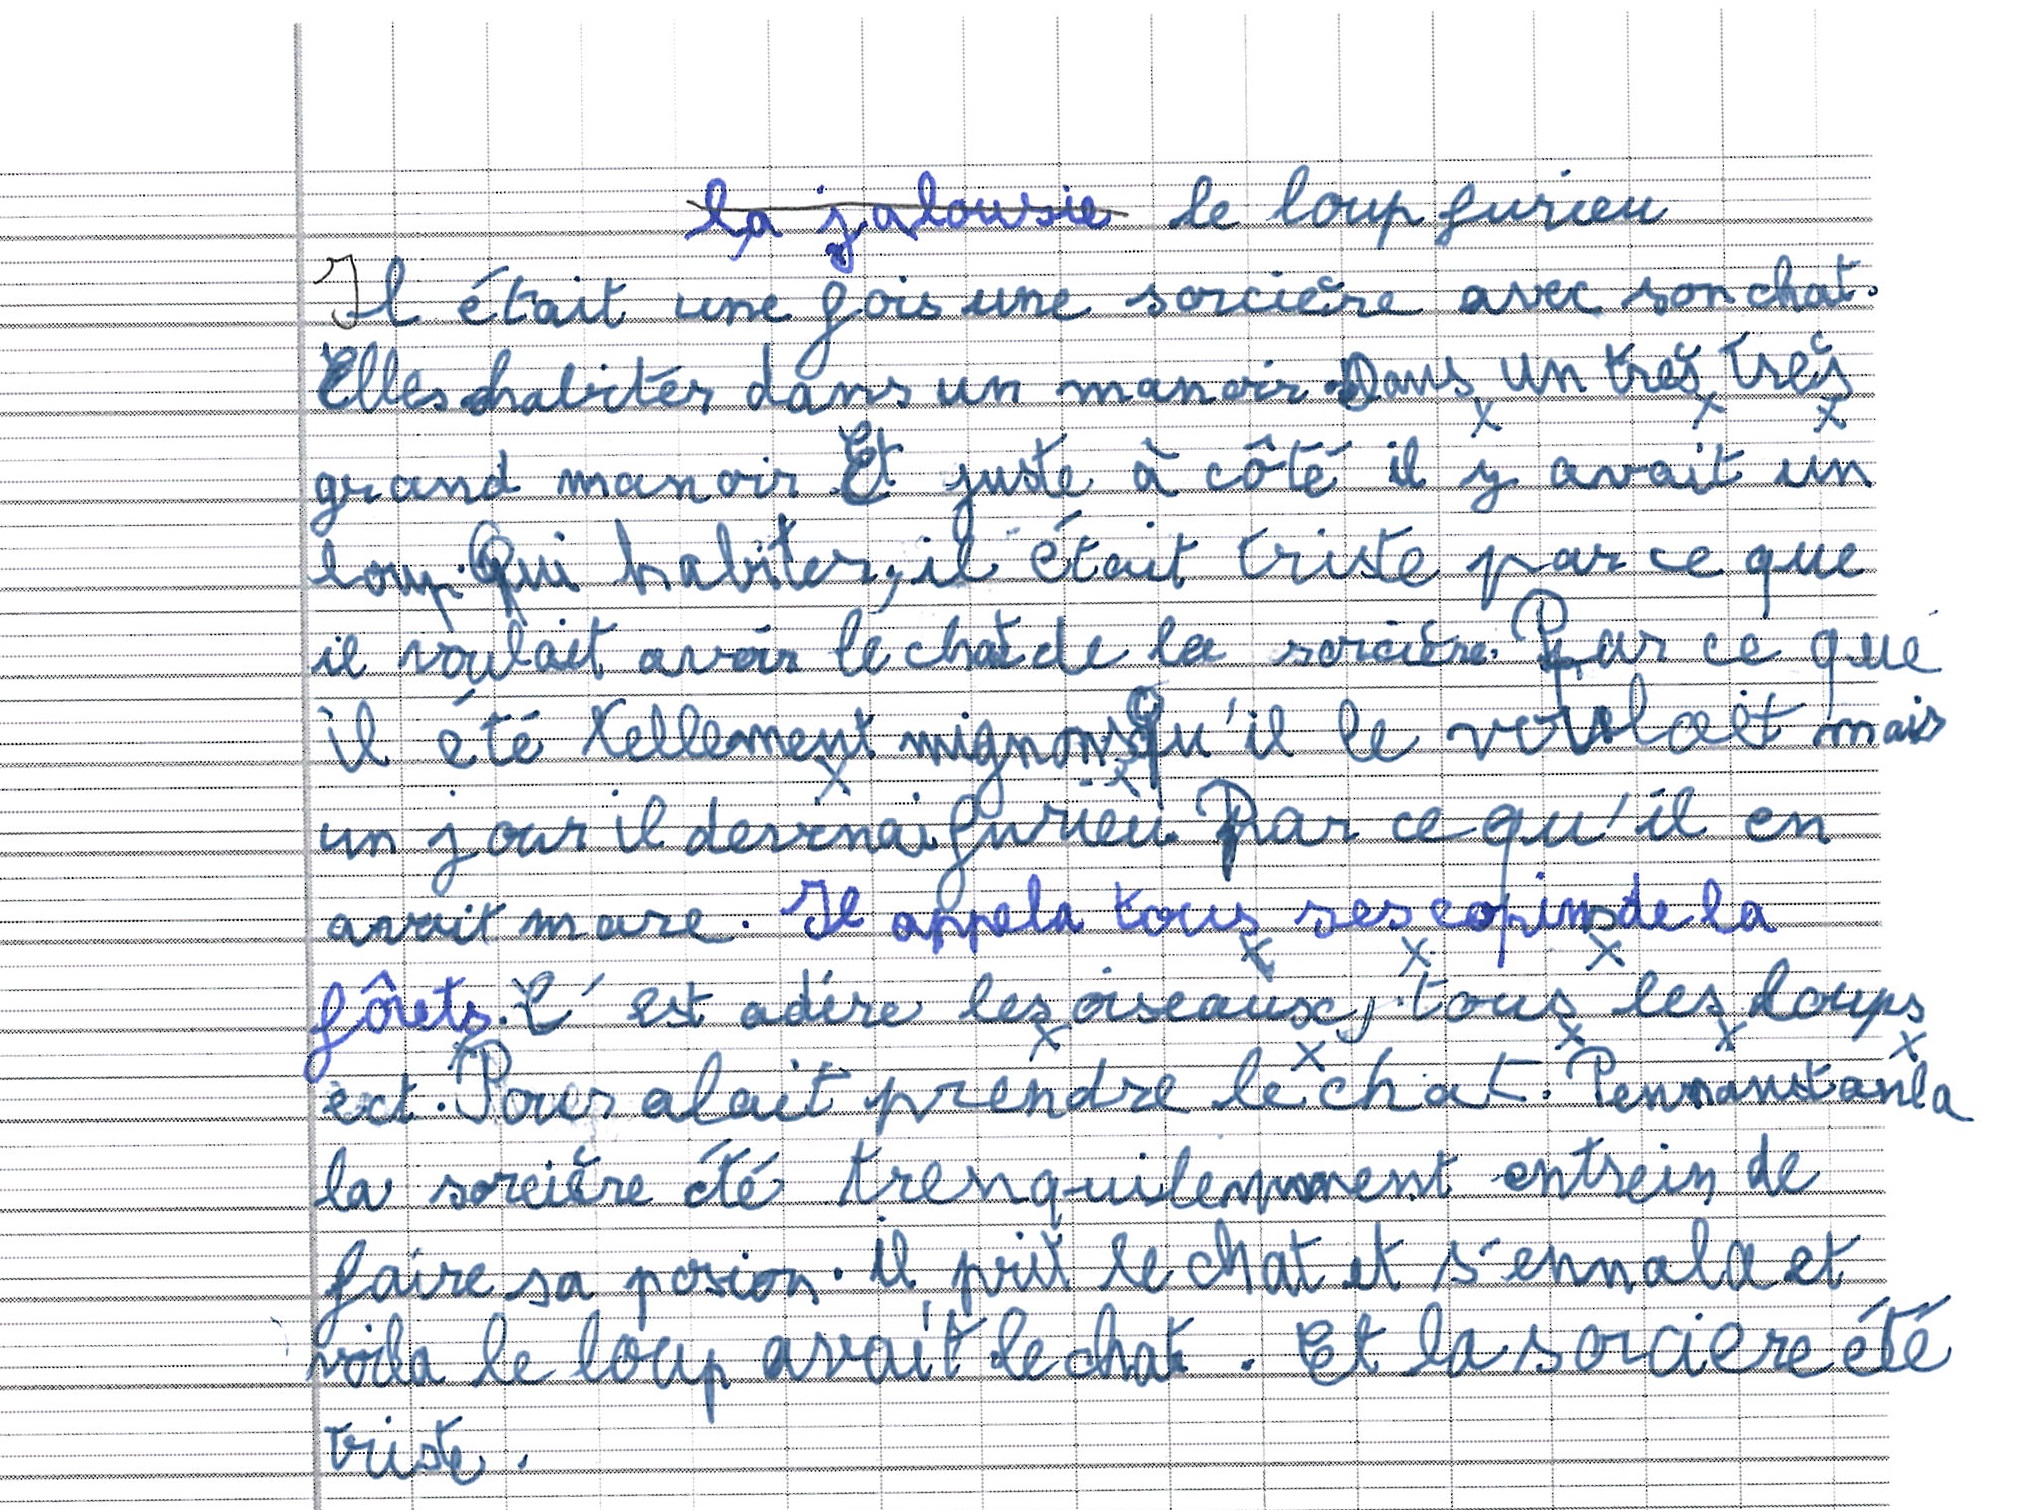 la jalousie le loup furieu
Il était une fois une sorcière avec son chat.
Elles habités dans un manoir. Dans un très très
grand manoir Et juste à côté il y avait un
loup. Qui habiter, il était triste par ce que
il voulait avoir le chat de la sorcière. Par ce que
il été tellement mignon Qu'il le voulait mais
un jour il devenai furieu. Par ce qu'il en
avait mare. Il appela tous ses copins de la
fôrets. C'est adére les oiseaux, tous les loups
ect. Pour alait prendre le chat. Pennanstanla
la sorcière été trenquilemment entrein de
faire sa posion. il prit le chat et s'ennala et
voila le loup avait le chat. Et la sorciere été
triste.